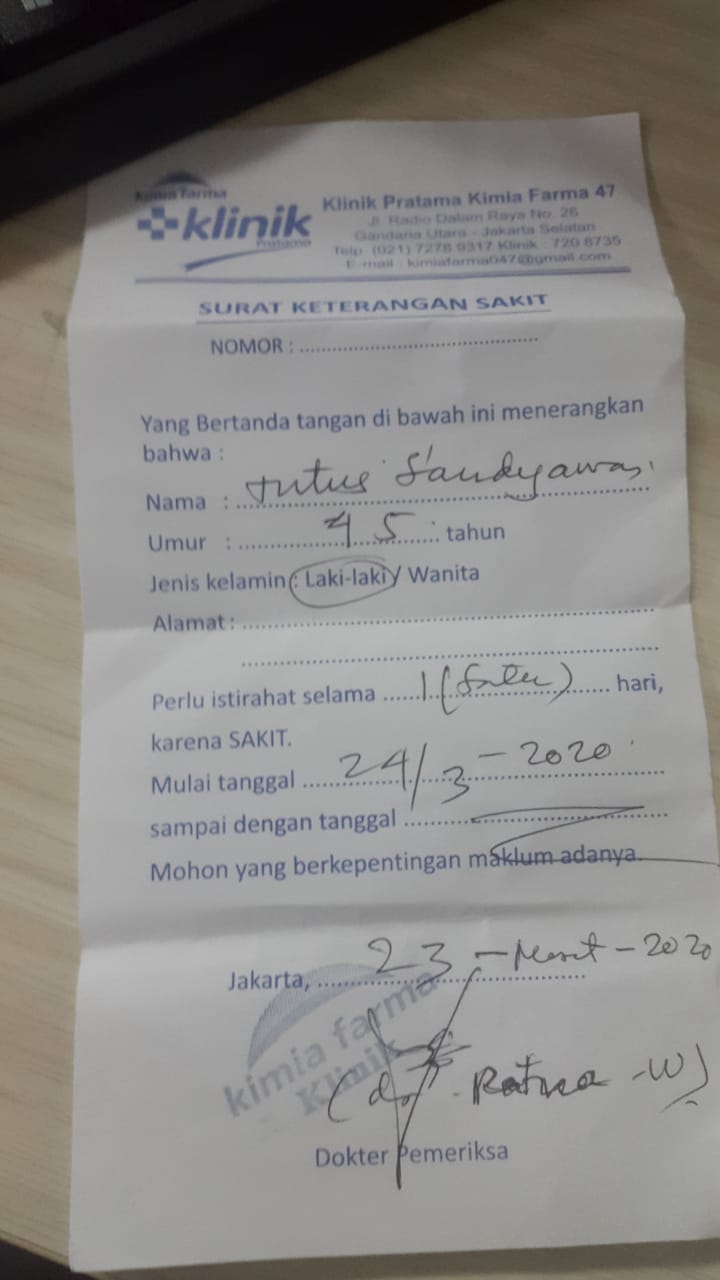 kimia farma
klinik
Pratama
Klinik Pratama Kimia Farma 47
Jl. Radio Dalam Raya No. 26
Gandaria Utara - Jakarta Selatan
Telp. (021) 7278 9317 Klinik : 720 8735
E-mail : kimiafarma047@gmail.com
SURAT KETERANGAN SAKIT
NOMOR : ..........................................
Yang Bertanda tangan di bawah ini menerangkan
bahwa :
Nama : Tutus Sandyawan
Umur : 45 tahun
Jenis kelamin : Laki-laki / Wanita
Alamat : ..........................................
Perlu istirahat selama 1 (satu) hari,
karena SAKIT.
Mulai tanggal 24/3-2020
sampai dengan tanggal
Mohon yang berkepentingan maklum adanya.
Jakarta, 23-Maret-2020
kimia farma
Klinik
(dr. Ratna -W)
Dokter Pemeriksa